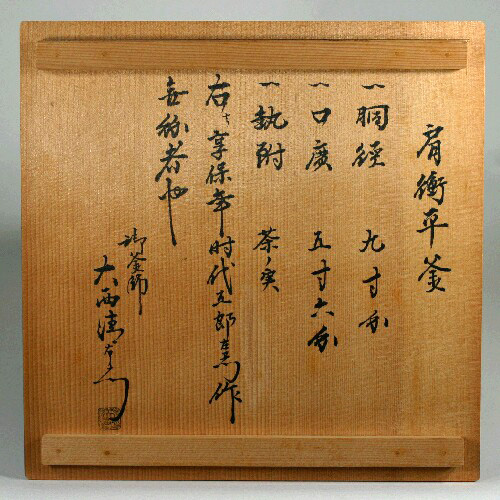 肩衝平釜
一胴径 九寸分
一口廣 五寸六分
一執附 茶ノ実
右ハ享保年时代五郎左衛門作
無紛者也
御釜師
大西清右衛門